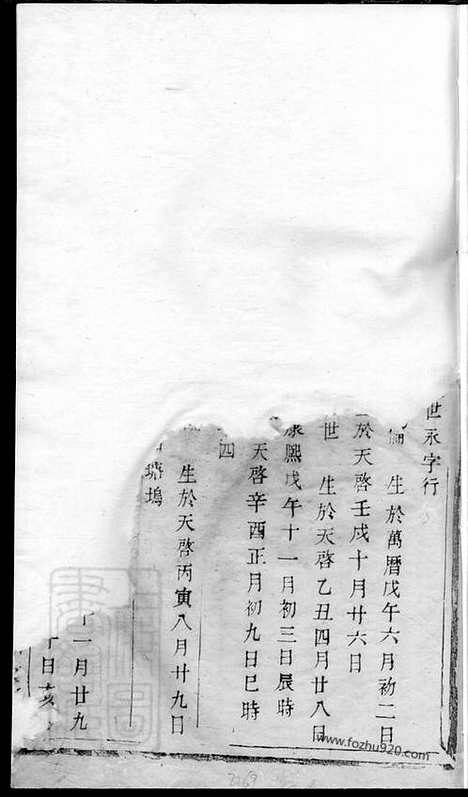 世永字行
生於萬曆戊午六月初二日
於天啓壬戌十月廿六日
世　生於天啓乙丑四月廿八日
康熙戊午十一月初三日辰時
天啓辛酉正月初九日巳時
四
生於天啓丙寅八月廿九日
塘塢
十一月廿九
日亥
www.fozhu920.com